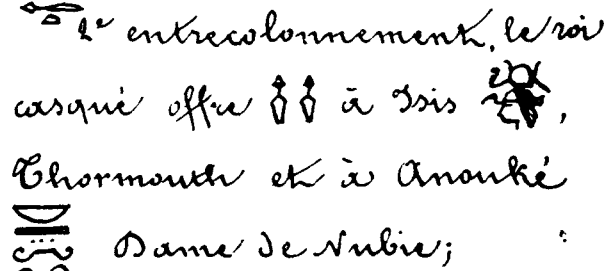 2e entrecolonnement, le roi
casqué offre à Isis ,
Thormouth et à Anouké
Dame de Nubie;